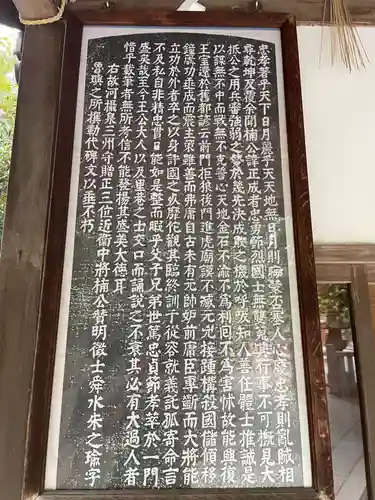 忠孝著乎天下日月麗乎天天地無日月則晦蒙否塞人心廢忠孝則亂賊相
尋乾坤反覆余聞楠公諱正成者忠勇節烈國士無雙蒐其行事不可概見大
抵公之用兵審強弱之勢於幾先決成敗之機於呼吸知人善任體士推誠是
以謀無不中而戰無不克誓心天地金石不渝不爲利回不爲害怵故能興復
王室還於舊都諺云前門拒狼後門進虎廟謨不臧元兇接踵構殺國儲傾移
鐘簴功垂成而震主策雖善而弗庸自古未有元帥妒前庸臣專斷而大將能
立功於外者卒之以身許國之死靡佗觀其臨終訓子從容就義託孤寄命言
不及私自非精忠貫日能如是整而暇乎父子兄弟世篤忠貞節孝萃於一門
盛矣哉至今王公大人以及里巷之士交口而誦說之不衰其必有大過人者
惜乎載筆者無所考信不能發揚其盛美大德耳
右故河攝泉三州守贈正三位近衛中將楠公贊明徵士舜水朱之瑜字
魯璵之所撰勒代碑文以垂不朽